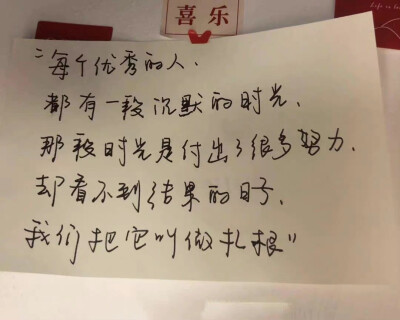 喜乐
“每个优秀的人.
都有一段沉默的时光.
那段时光是付出了很多努力.
却看不到结果的日子.
我们把它叫做扎根”